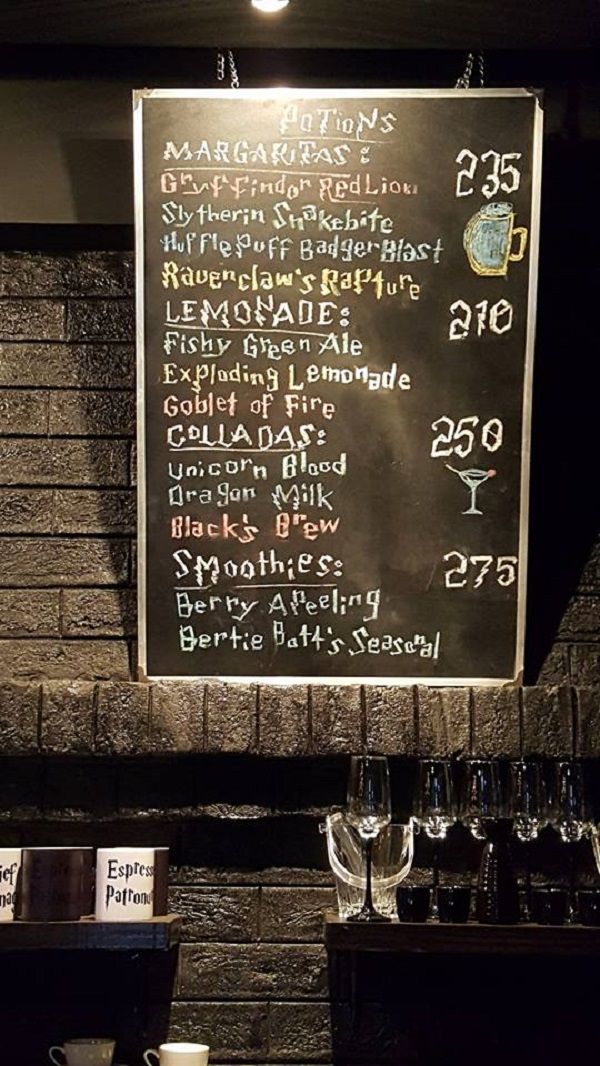 POTIONS
MARGARITAS: 235
Gryffindor Red Lion
Slytherin Snakebite
Hufflepuff Badger Blast
Ravenclaw's Rapture
LEMONADE: 210
Fishy Green Ale
Exploding Lemonade
Goblet of Fire
COLLADAS: 250
Unicorn Blood
Dragon Milk
Black's Brew
Smoothies: 275
Berry Apeeling
Bertie Bott's Seasonal
Espress
Patron